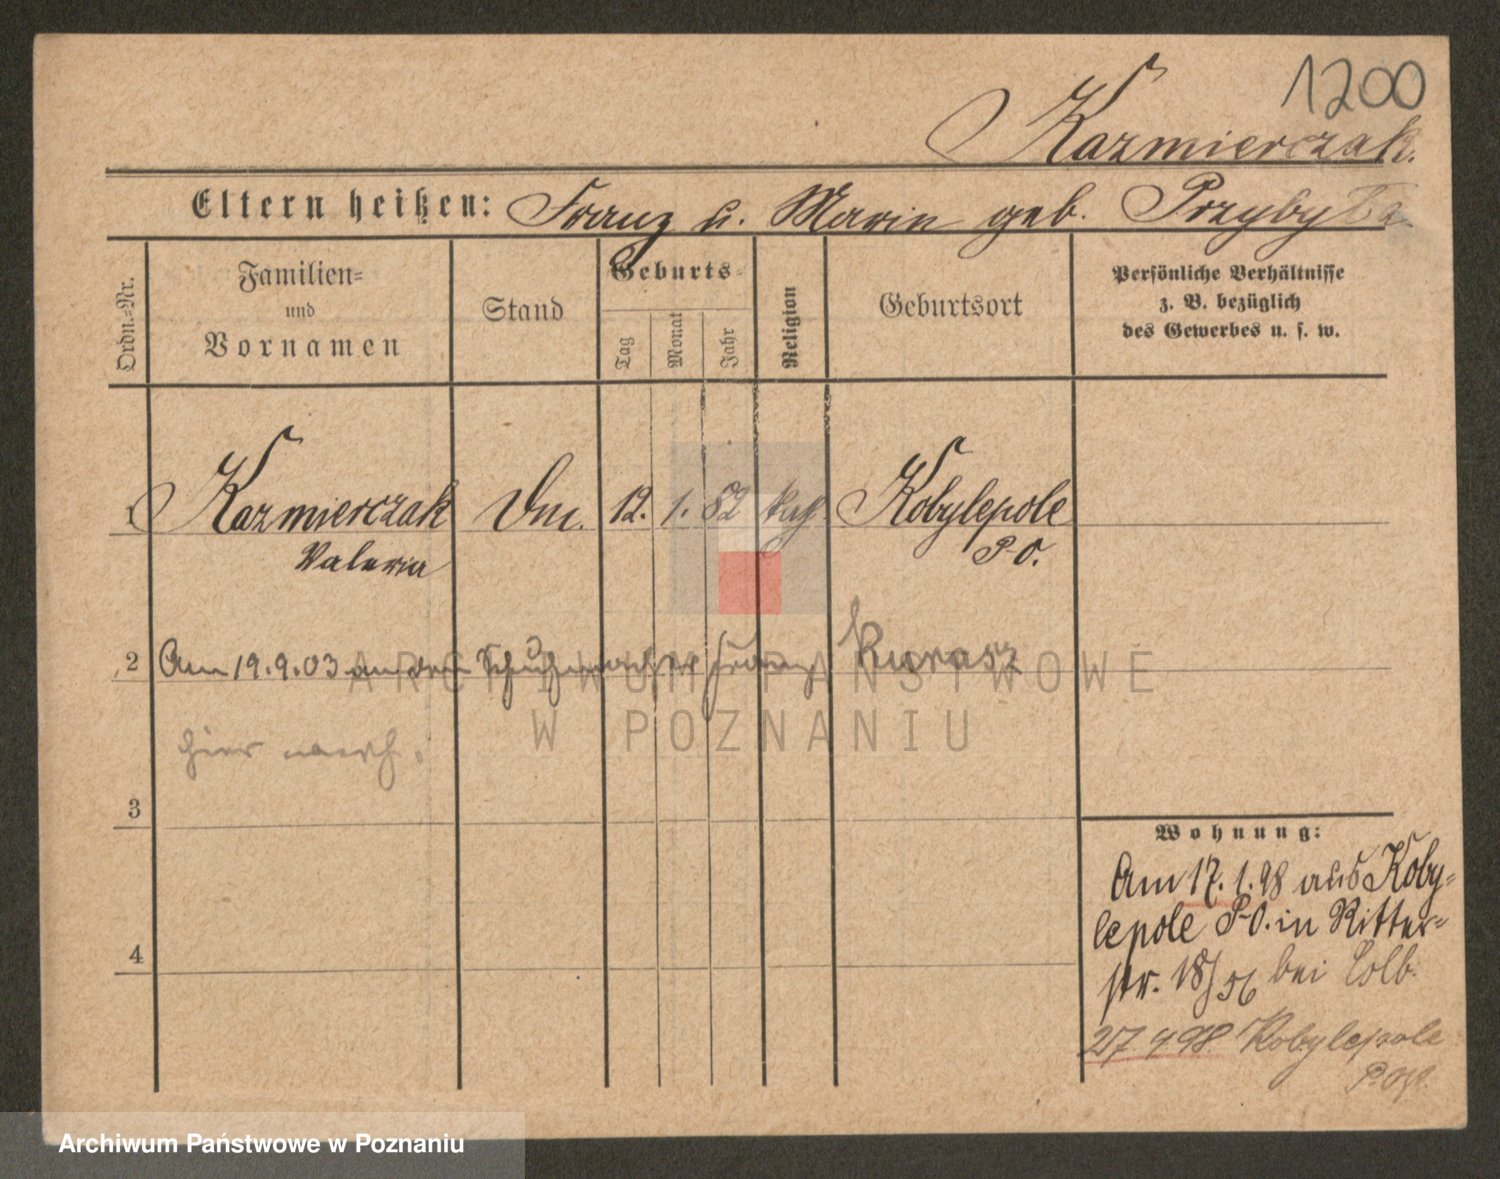 1200
Kazmierczak.
Eltern heißen: Franz u. Marie geb. Przybyła
Ordn.-Nr.
Familien- und Vornamen
Stand
Geburts-
Tag
Monat
Jahr
Religion
Geburtsort
Persönliche Verhältnisse
z. B. bezüglich
des Gewerbes u. s. w.
1 Kazmierczak 12. 1. 82 kath. Kobylepole
Valeria P-O.
2 Am 19.9.03 an den Schuhmacher Franz
hier
3
4
Wohnung:
Am 17.1.98 aus Koby-
lepole P-O. in Ritter-
str. 18/ bei Colb.
27.4.98. Kobylepole
P.
ARCHIWUM PAŃSTWOWE
W POZNANIU
Archiwum Państwowe w Poznaniu